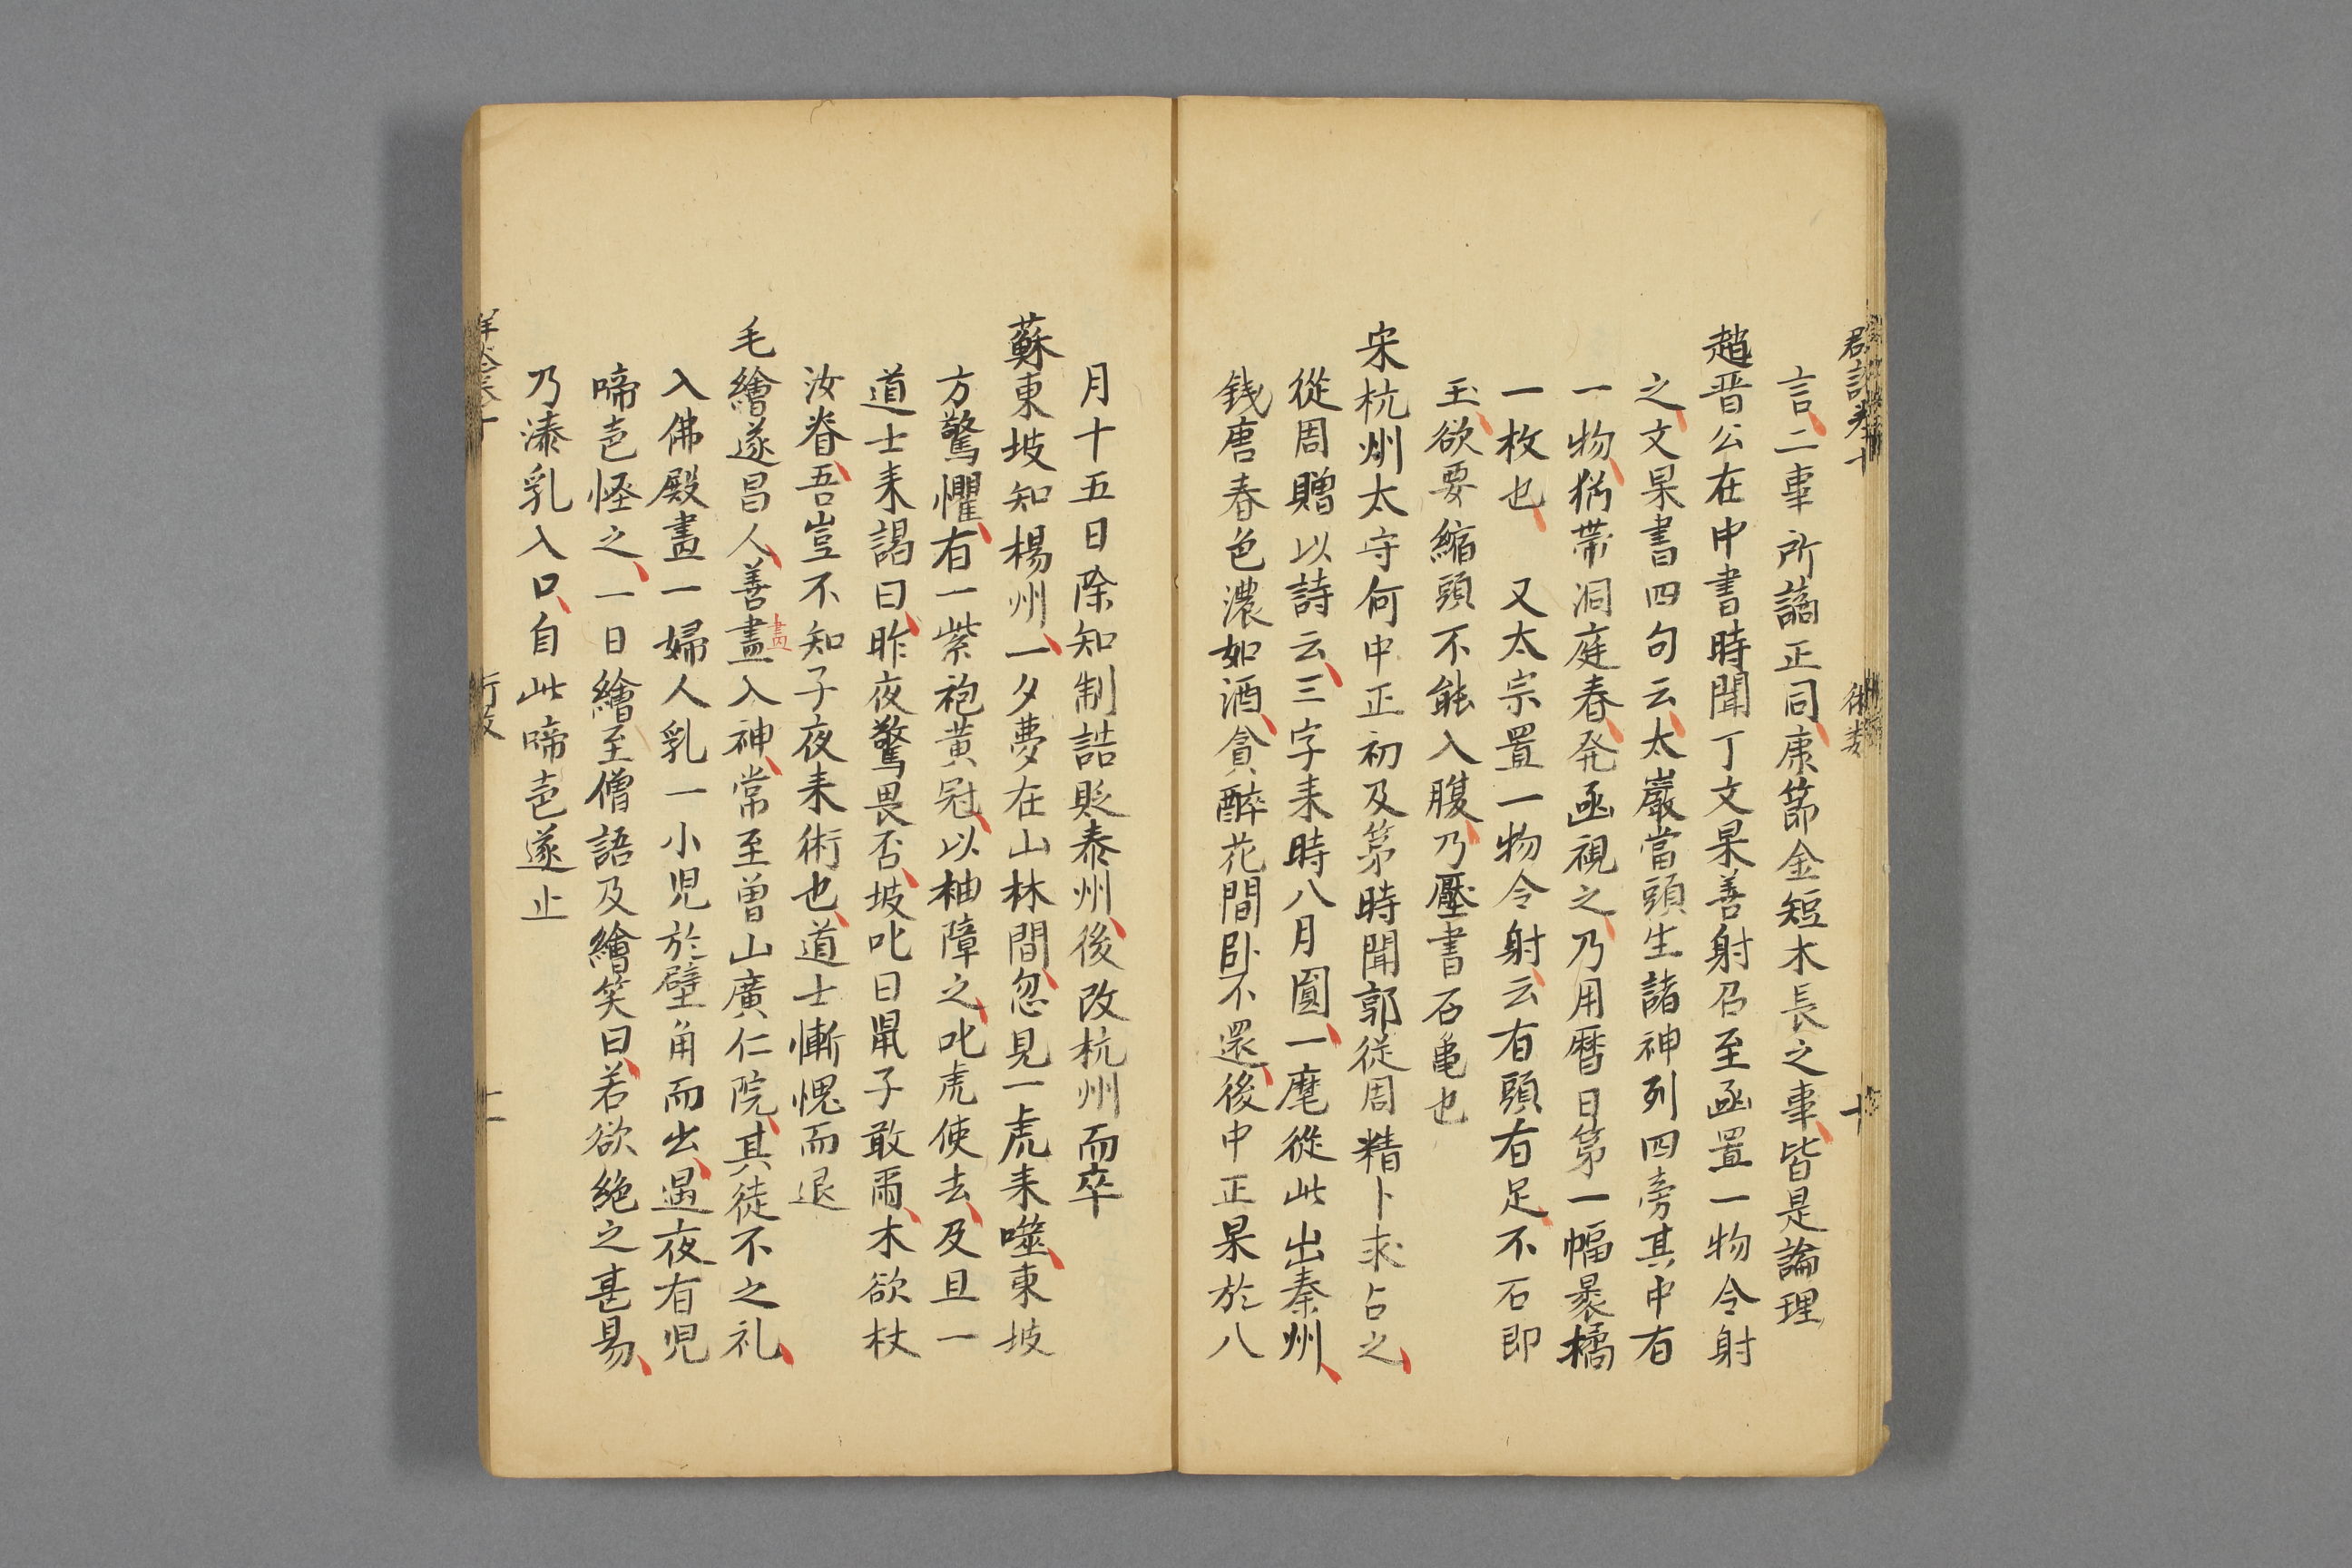 言二事所謂正同康節金短木長之事皆是論理
趙晋公在中書時聞丁文杲善射召至函置一物令射
之文杲書四句云太巖當頭生諸神列四旁其中有
一物猶帶洞庭春発函視之乃用暦日第一幅裹橘
一枚也 又太宗置一物令射云有頭有足不石即
玉欲要縮頭不能入腹乃壓書石亀也
宋杭州太守何中正初及第時聞郭従周精卜求占之
從周贈以詩云三字来時八月圓一麾從此出秦州
銭唐春色濃如酒貪醉花間卧不還後中正杲於八
月十五日除知制誥貶泰州後改杭州而卒
蘇東坡知楊州一夕夢在山林間忽見一虎来噬東坡
方驚懼有一紫袍黄冠以紬障之叱虎使去及旦一
道士来謁曰昨夜驚畏否坡叱曰鼠子敢爾木欲杖
汝脊吾豈不知子夜来術也道士慚愧而退
毛繪遂昌人善盡入神常至曽山廣仁院其徒不之礼
畫
入佛殿畫一婦人乳一小児於壁角而出遇夜有児
啼声怪之一日繪至僧語及繪笑曰若欲絶之甚易
乃漆乳入口自此啼声遂止